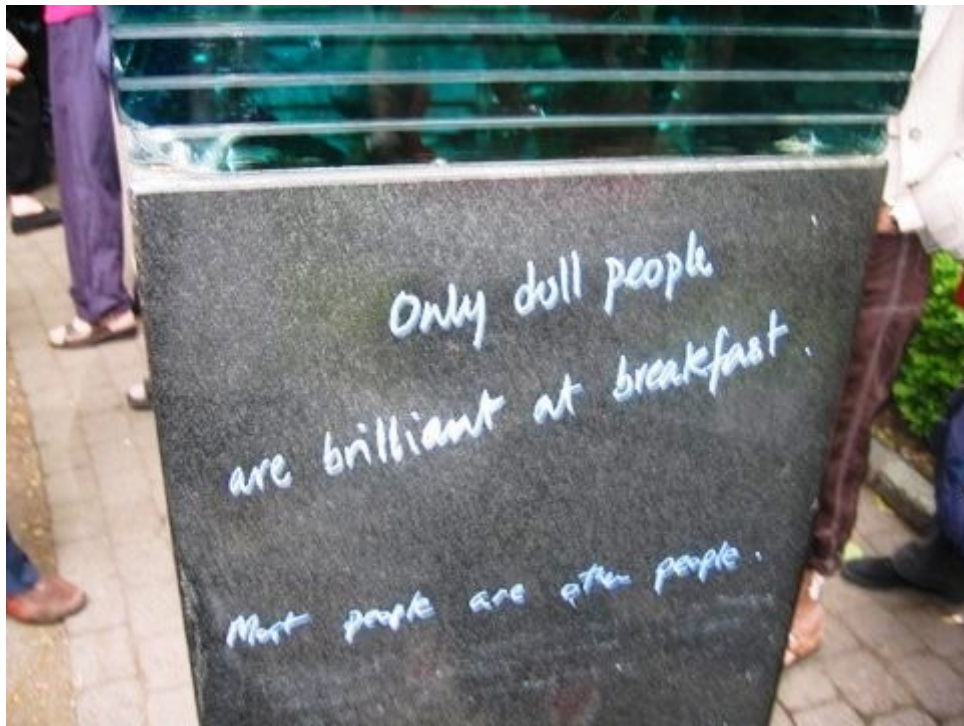 Only dull people
are brilliant at breakfast.
Most people are other people.